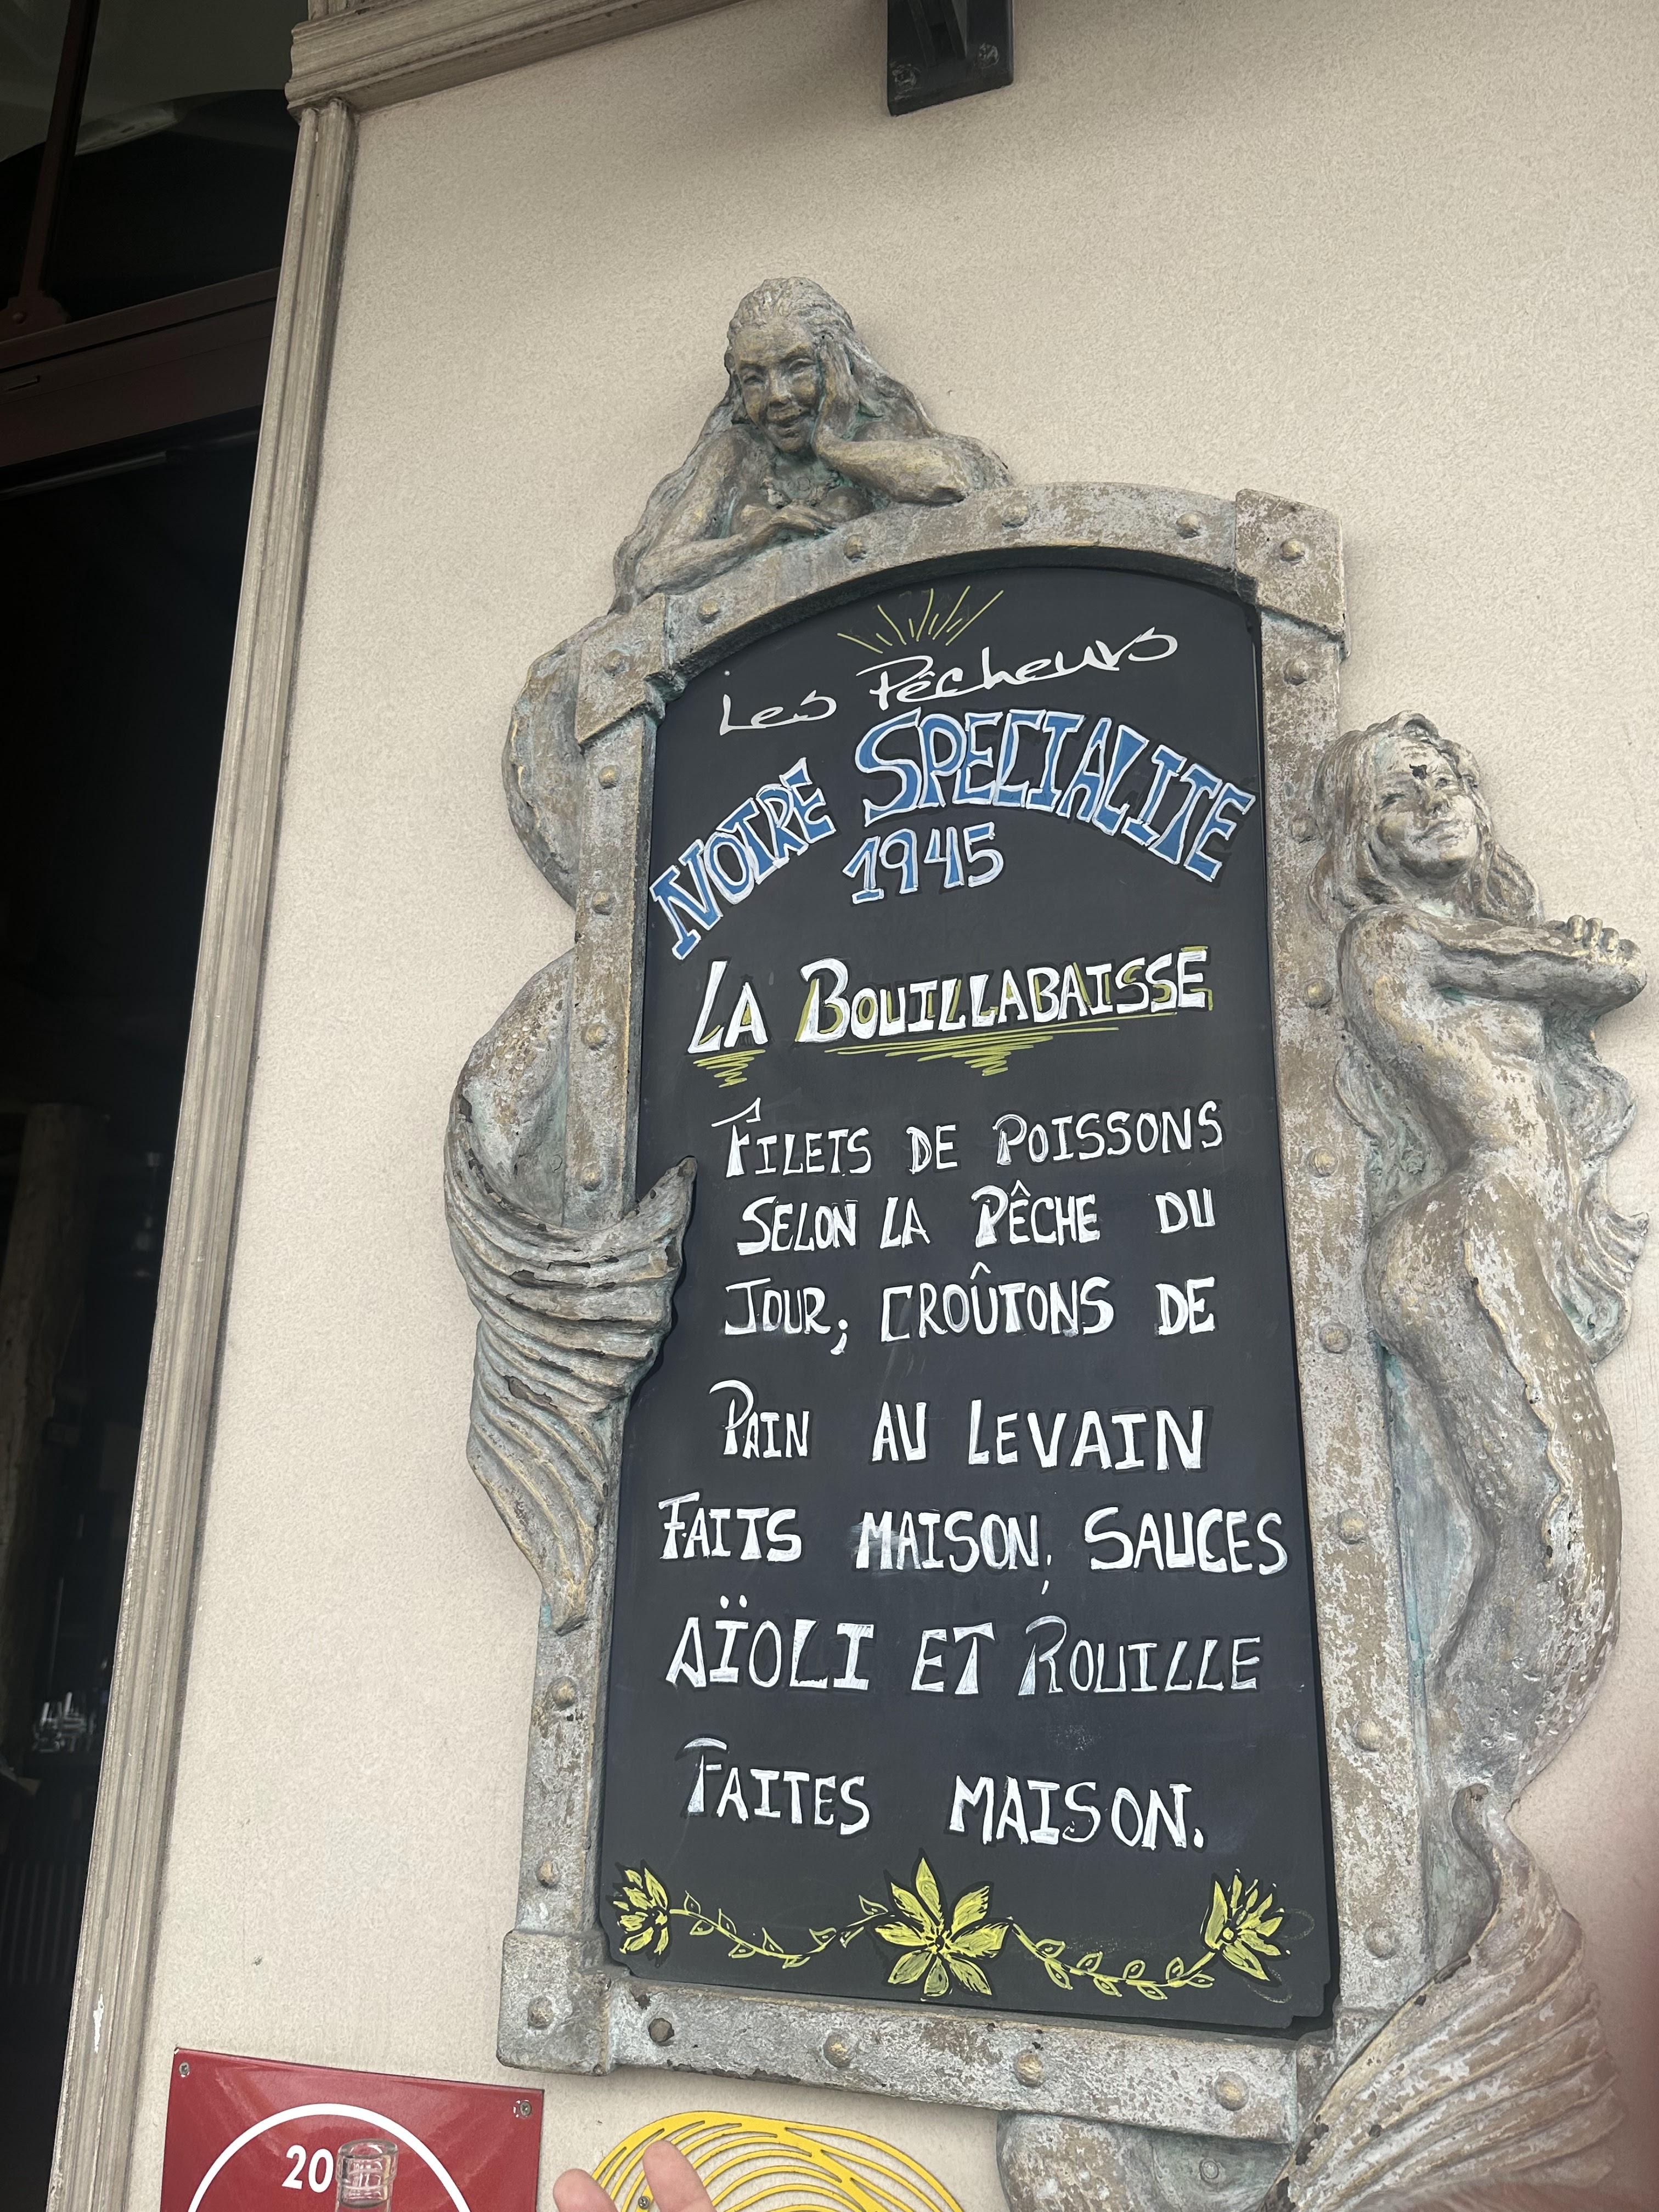 Les Pêcheurs
NOTRE SPECIALITE
1945
LA BOUILLABAISSE
FILETS DE POISSONS
SELON LA PÊCHE DU
JOUR; CROÛTONS DE
PAIN AU LEVAIN
FAITS MAISON, SAUCES
AÏOLI ET ROUILLE
FAITES MAISON.
20